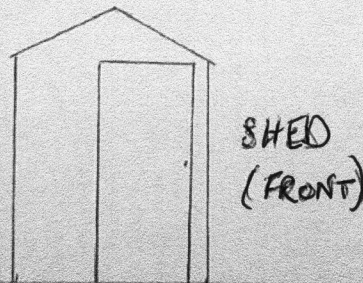 SHED
(FRONT)